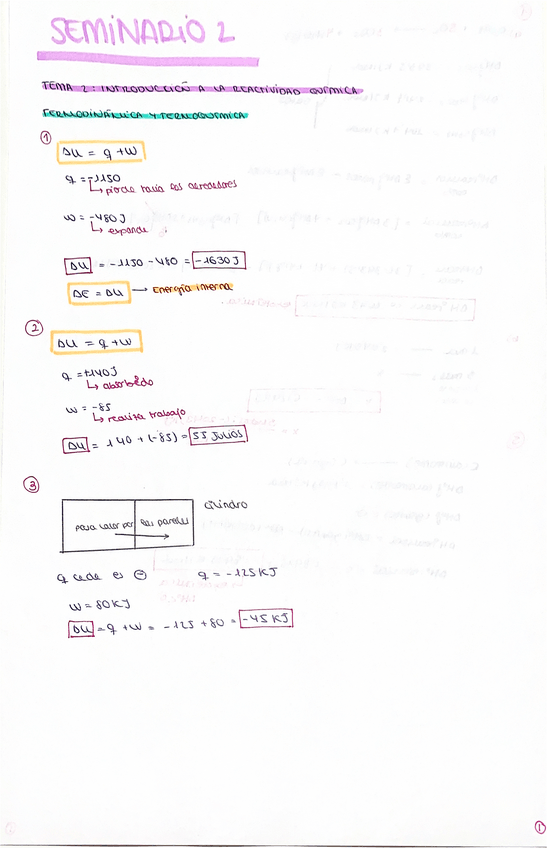 SEMINARIO 2
TEMA 2: INTRODUCCIÓN A LA REACTIVIDAD QUÍMICA
TERMODINÁMICA Y TERMOQUÍMICA
①
ΔU = q + W
q = -1150
↳ pierde hacia los alrededores
w = -480 J
↳ expande
ΔU = -1150 - 480 = -1630 J
ΔE = ΔU → Energía interna
②
ΔU = q + W
q = +140 J
↳ absorbido
w = -85
↳ realiza trabajo
ΔU = 140 + (-85) = 55 JULIOS
③
cilindro
pasa calor por las paredes
q cede es ⊖ q = -125 KJ
W = 80 KJ
ΔU = q + W = -125 + 80 = -45 KJ
①